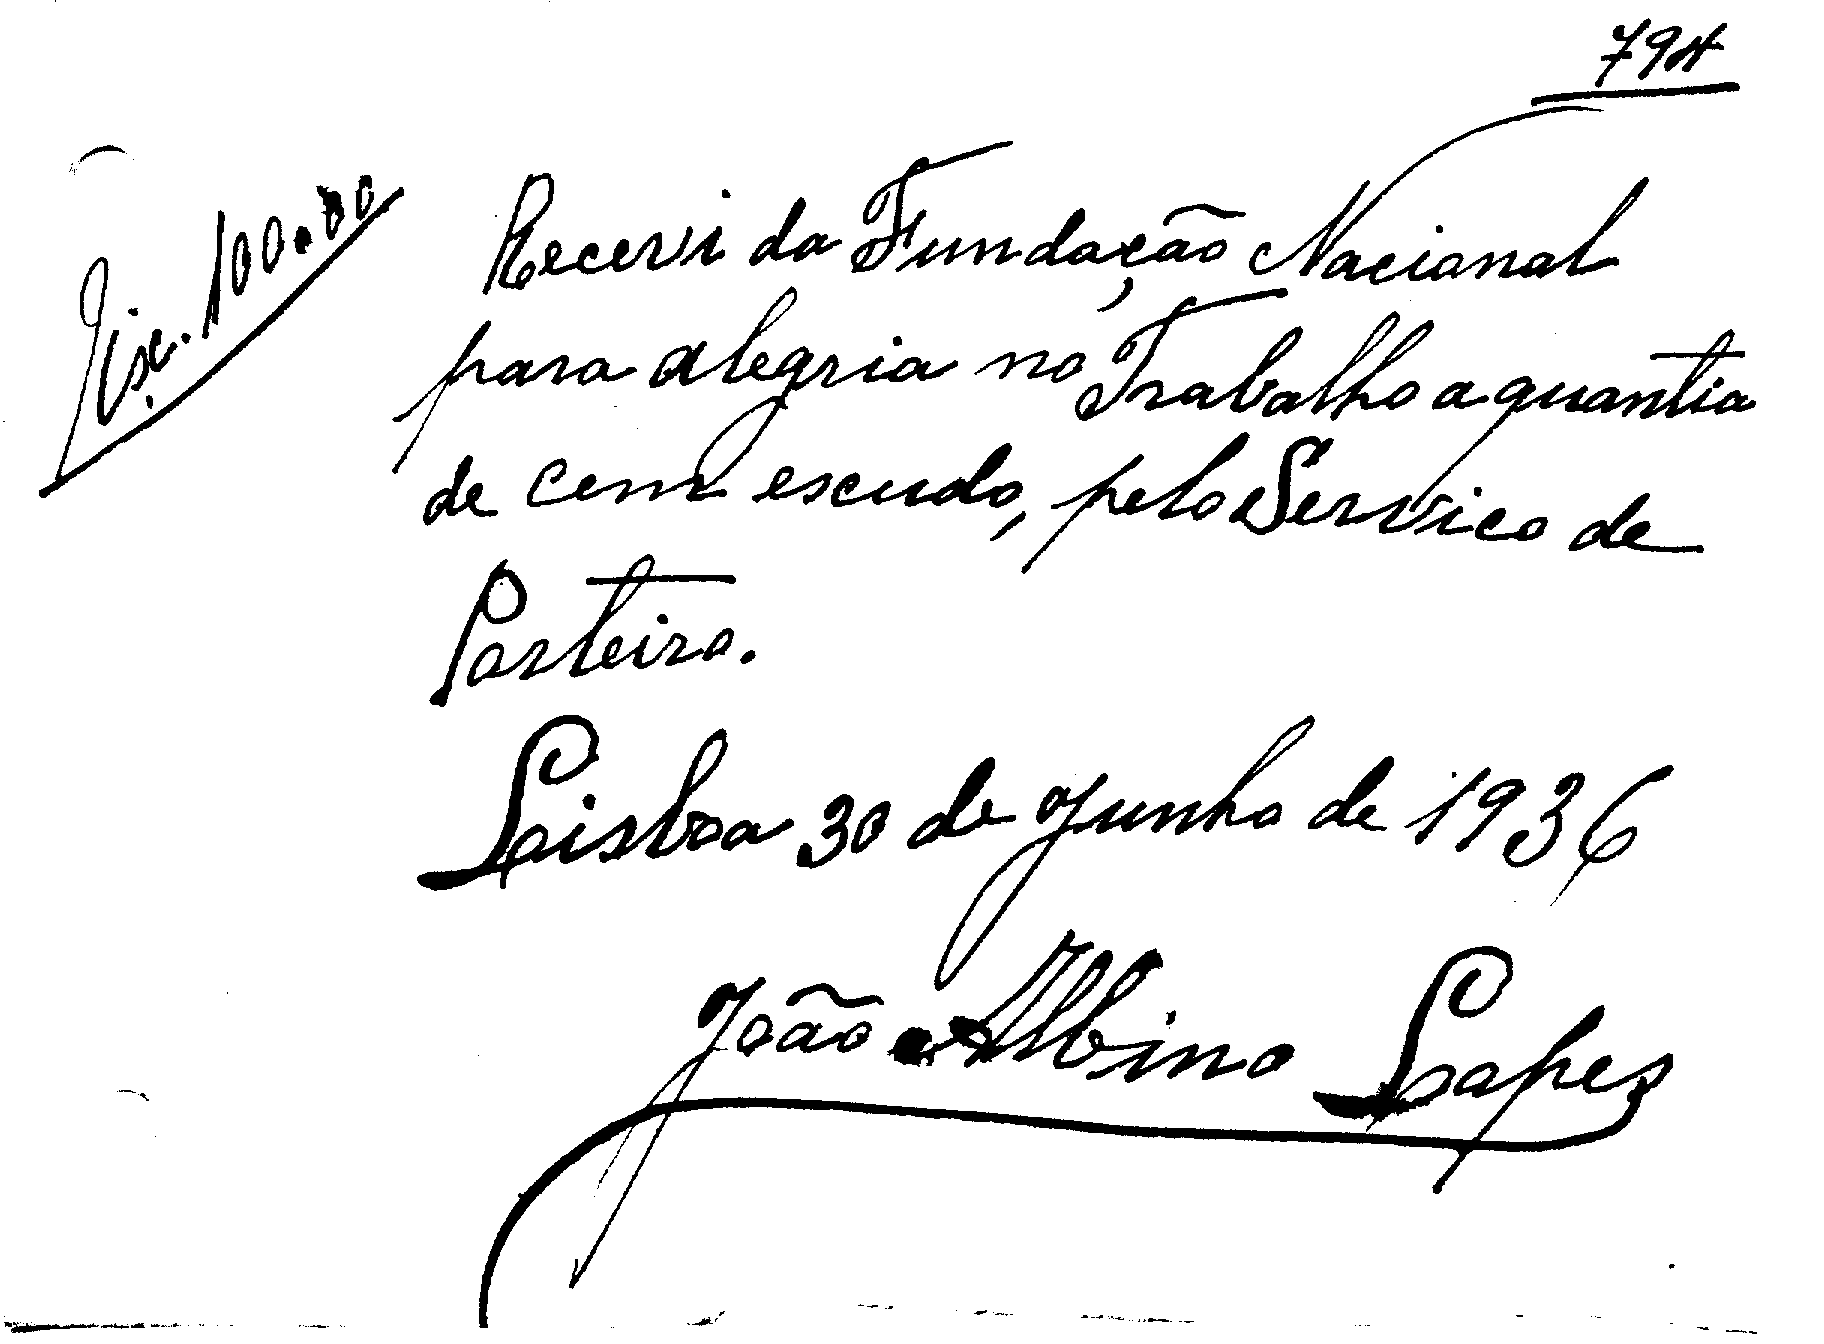 794
Esc. 100.00
Recevi da Fundação Nacional
para alegria no Trabalho a quantia
de cem escudo, pelo Servico de
Porteiro.
Lisboa 30 de Junho de 1936
João Albino Lopes